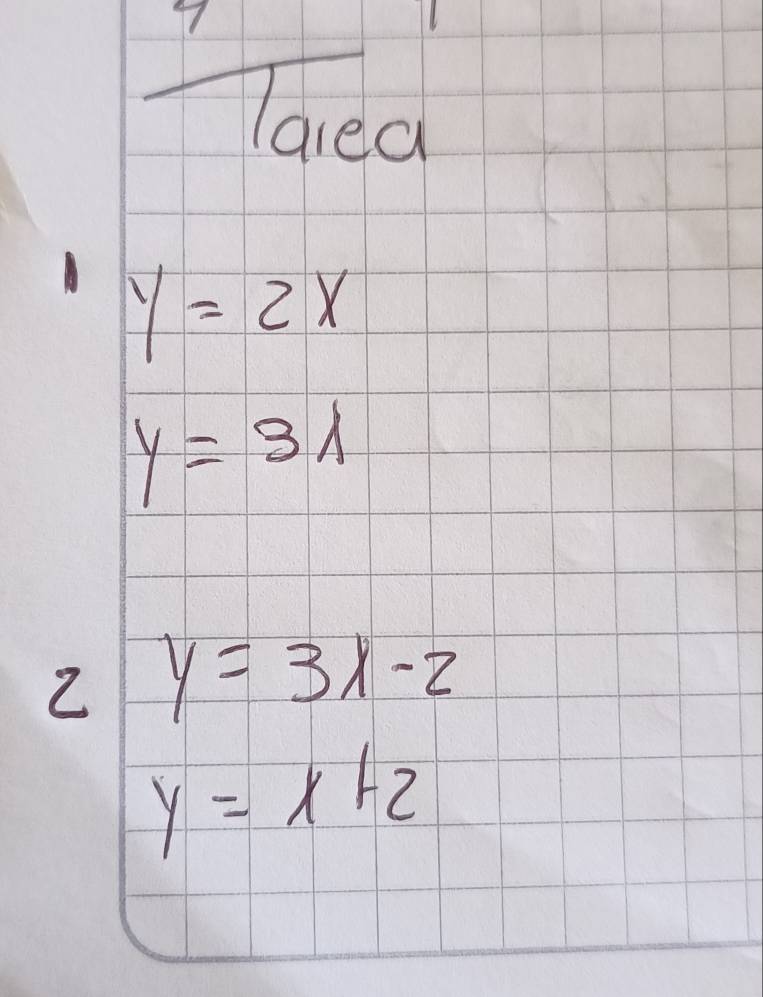 Tarea
1 y = 2x
y = 3x
2 y = 3x - 2
y = x + 2